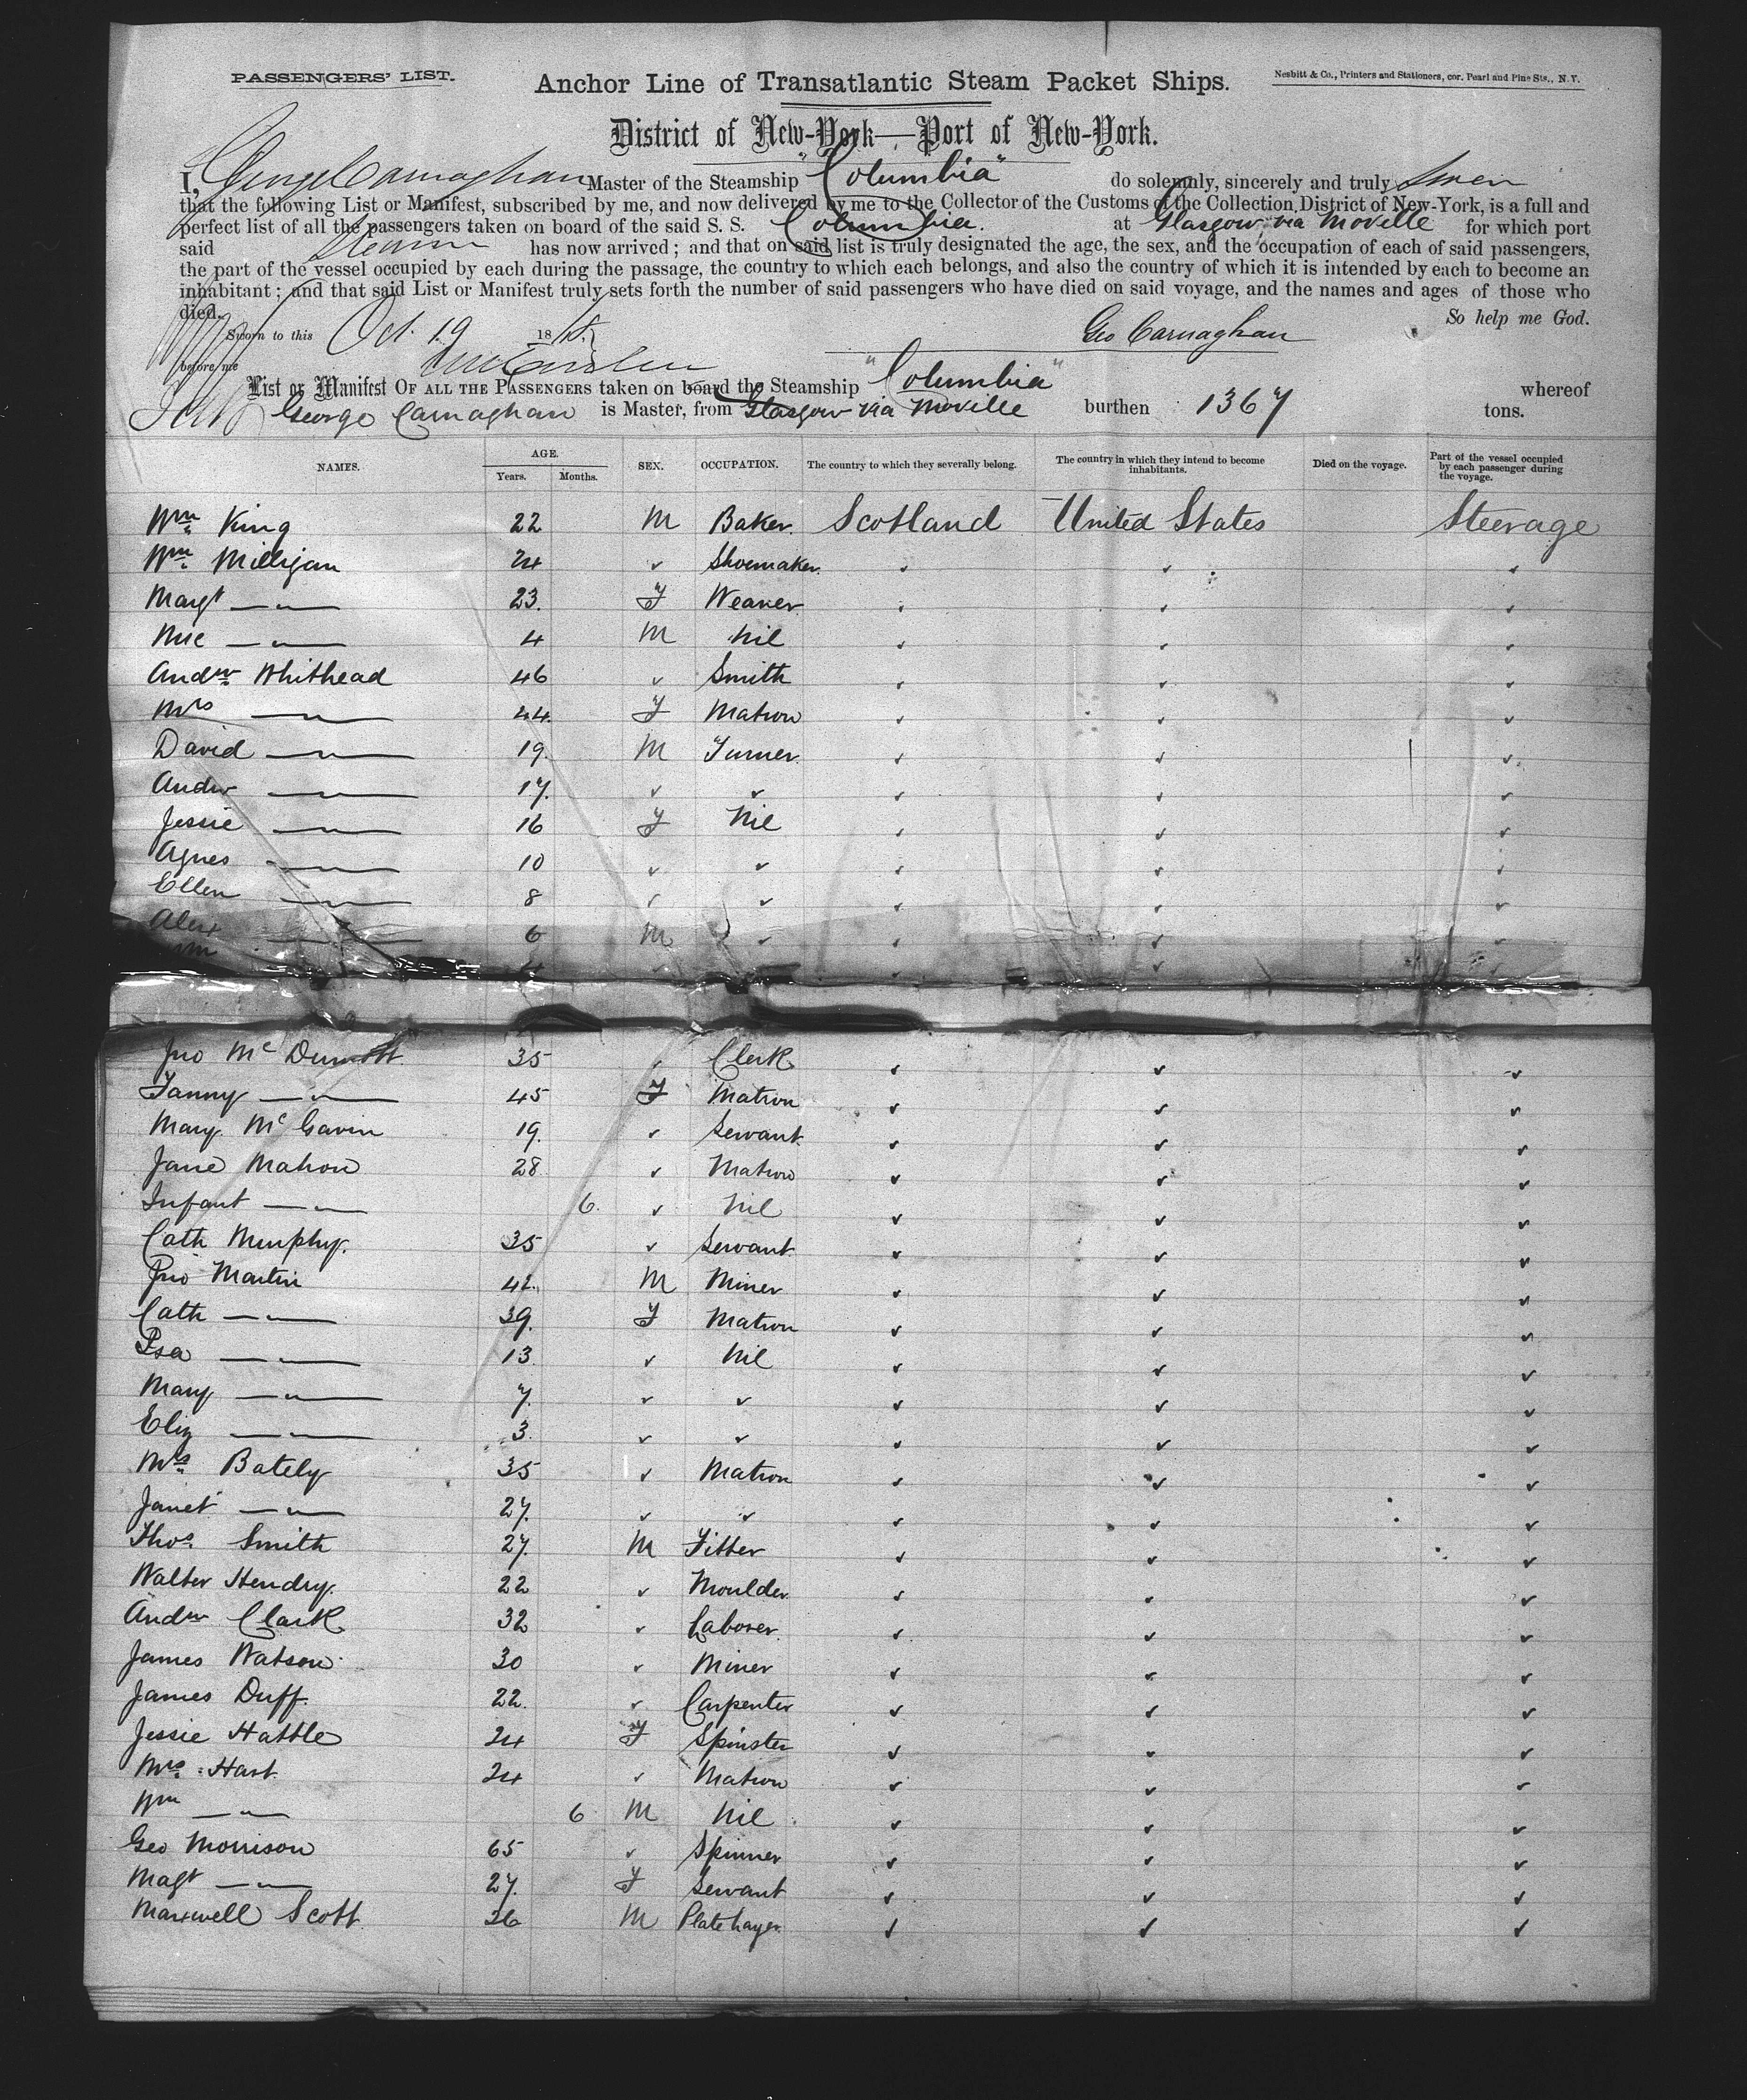 PASSENGERS' LIST.
Anchor Line of Transatlantic Steam Packet Ships.
Nesbitt & Co., Printers and Stationers, cor. Pearl and Pine Sts., N.Y.
District of New-York—Port of New-York.
I, George Carnaghan Master of the Steamship "Columbia" do solemnly, sincerely and truly Swear
that the following List or Manifest, subscribed by me, and now delivered by me to the Collector of the Customs of the Collection District of New-York, is a full and
perfect list of all the passengers taken on board of the said S. S. Columbia. at Glasgow via Moville for which port
said Steamer has now arrived; and that on said list is truly designated the age, the sex, and the occupation of each of said passengers,
the part of the vessel occupied by each during the passage, the country to which each belongs, and also the country of which it is intended by each to become an
inhabitant; and that said List or Manifest truly sets forth the number of said passengers who have died on said voyage, and the names and ages of those who
died. So help me God.
Sworn to this Oct. 19 18 Geo Carnaghan
before me
List or Manifest OF ALL THE PASSENGERS taken on board the Steamship "Columbia" whereof
George Carnaghan is Master, from Glasgow via Moville burthen 1367 tons.
NAMES. AGE. Years. Months. SEX. OCCUPATION. The country to which they severally belong. The country in which they intend to become inhabitants. Died on the voyage. Part of the vessel occupied by each passenger during the voyage.
Wm King 22 M Baker. Scotland United States Steerage
Wm Milligan 24 " Shoemaker. " " "
Margt —"— 23. F Weaver " " "
—"— 4 M Nil " " "
Andw Whithead 46 " Smith " " "
Mrs —"— 44. F Matron " " "
David —"— 19. M Turner. " " "
Andw —"— 17. " " " " "
Jessie —"— 16 F Nil " " "
Agnes —"— 10 " " " " "
Ellen —"— 8 " " " " "
Alex —"— 6 M " " " "
Jno McDermott 35 " Clerk " " "
Fanny —"— 45 F Matron " " "
Mary McGavin 19. " Servant " " "
Jane Mahon 28 " Matron " " "
Infant —"— 6. " Nil " " "
Cath Murphy. 35 " Servant " " "
Jno Martin 42. M Miner " " "
Cath —"— 39. F Matron " " "
Isa —"— 13. " Nil " " "
Mary —"— 7. " " " " "
Eliz —"— 3. " " " " "
Mrs. Bately 35 " Matron " " "
Janet —"— 27. " " " " "
Thos. Smith 27. M Fitter " " "
Walter Hendry. 22 " Moulder " " "
Andw Clark 32 " Laborer. " " "
James Watson 30 " Miner " " "
James Duff. 22. " Carpenter " " "
Jessie Hattle 24 F Spinster " " "
Mrs. Hart 24 " Matron " " "
Wm —"— 6 M Nil " " "
Geo Morrison 65 " Spinner " " "
Magt —"— 27. F Servant " " "
Maxwell Scott 26 M Plate Layer " " "